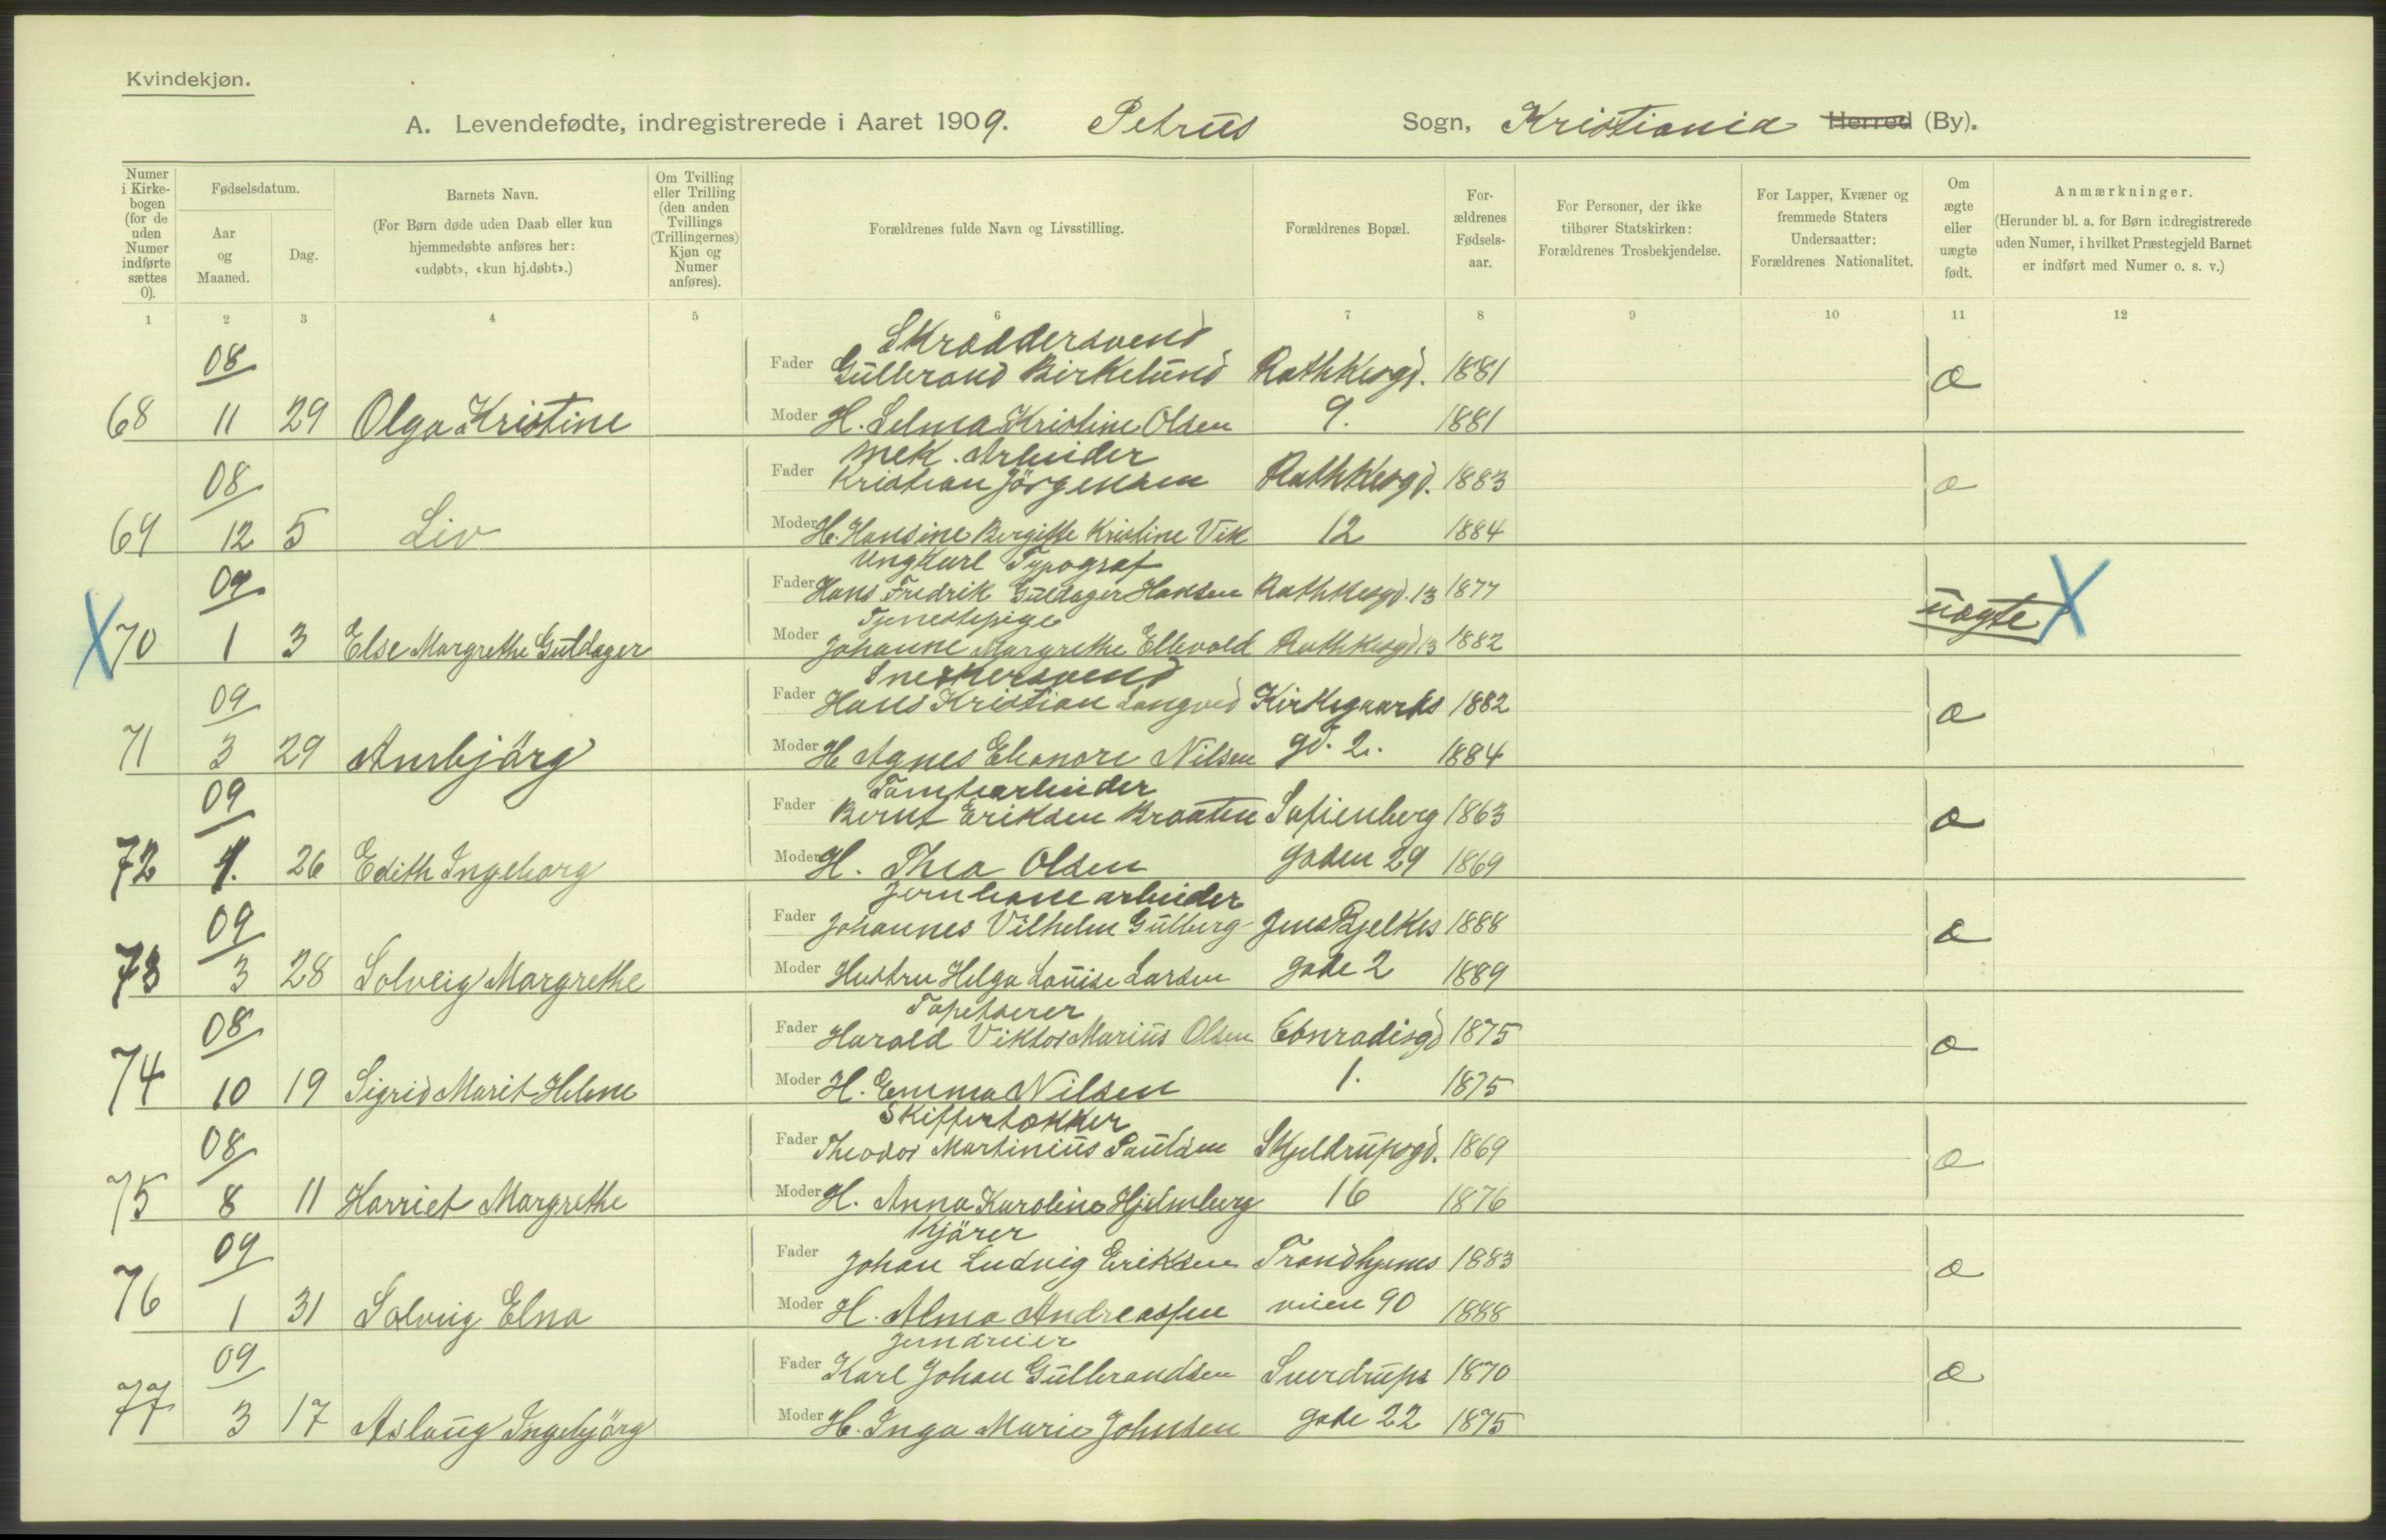 Kvindekjøn.
A. Levendefødte, indregistrerede i Aaret 1909. Petrus Sogn, Kristiania Herred (By).
Numer i Kirkebogen (for de uden Numer indførte sættes 0).
Fødselsdatum.
Aar og Maaned.
Dag.
Barnets Navn.
(For Børn døde uden Daab eller kun hjemmedøbte anføres her: «udøbt», «kun hj.døbt».)
Om Tvilling eller Trilling (den anden Tvillings (Trillingernes) Kjøn og Numer anføres).
Forældrenes fulde Navn og Livsstilling.
Forældrenes Bopæl.
Forældrenes Fødselsaar.
For Personer, der ikke tilhører Statskirken: Forældrenes Trosbekjendelse.
For Lapper, Kvæner og fremmede Staters Undersaatter: Forældrenes Nationalitet.
Om ægte eller uægte født.
Anmærkninger.
(Herunder bl. a. for Børn indregistrerede uden Numer, i hvilket Præstegjeld Barnet er indført med Numer o. s. v.)
1 2 3 4 5 6 7 8 9 10 11 12
Skræddersvend
08 Fader Gulbrand Birkelund Rathkesgd. 1881 æ
68 11 29 Olga Kristine Moder H. Selma Kristine Olsen 9. 1881
Mek. Arbeider
08 Fader Kristian Jörgensen Rathkesgd. 1883 æ
69 12 5 Liv Moder H. Hansine Bergitte Kristine Vik 12 1884
Ungkarl Typograf
09 Fader Hans Fredrik Guldager Hansen Rathkesgd. 13 1877 uægte X
Tjenestepige
X 70 1 3 Else Margrethe Guldager Moder Johanne Margrethe Ellevold Rathkesgd 13 1882
Snekersvend
09 Fader Hans Kristian Langved Kirkegaards 1882 æ
71 3 29 Ambjörg Moder H Agnes Eleonore Nilsen gd. 2. 1884
Tomtearbeider
09 Fader Bernt Eriksen Braaten Sofienberg 1863 æ
72 1. 26 Edith Ingeborg Moder H. Thea Olsen gaden 29 1869
Jernbanearbeider
09 Fader Johannes Vilhelm Gulberg Jens Bjelkes 1888 æ
73 3 28 Solveig Margrethe Moder Hustru Helga Louise Larsen gade 2 1889
Tapetserer
08 Fader Harald Viktor Marius Olsen Conradisgd 1875 æ
74 10 19 Sigrid Marit Helene Moder H. Emma Nilsen 1. 1875
Skiffertækker
08 Fader Theodor Martinius Paulsen Skjeldrupsgd. 1869 æ
75 8 11 Harriet Margrethe Moder H. Anna Karoline Hjelmberg 16 1876
Kjörer
09 Fader Johan Ludvig Eriksen Trondhjems 1883 æ
76 1 31 Solveig Elna Moder H. Alma Andreassen veien 90 1888
Jerndreier
09 Fader Karl Johan Gulbrandsen Sverdrups 1870 æ
77 3 17 Aslaug Ingebjörg Moder H. Inga Marie Johnsen gade 22 1875